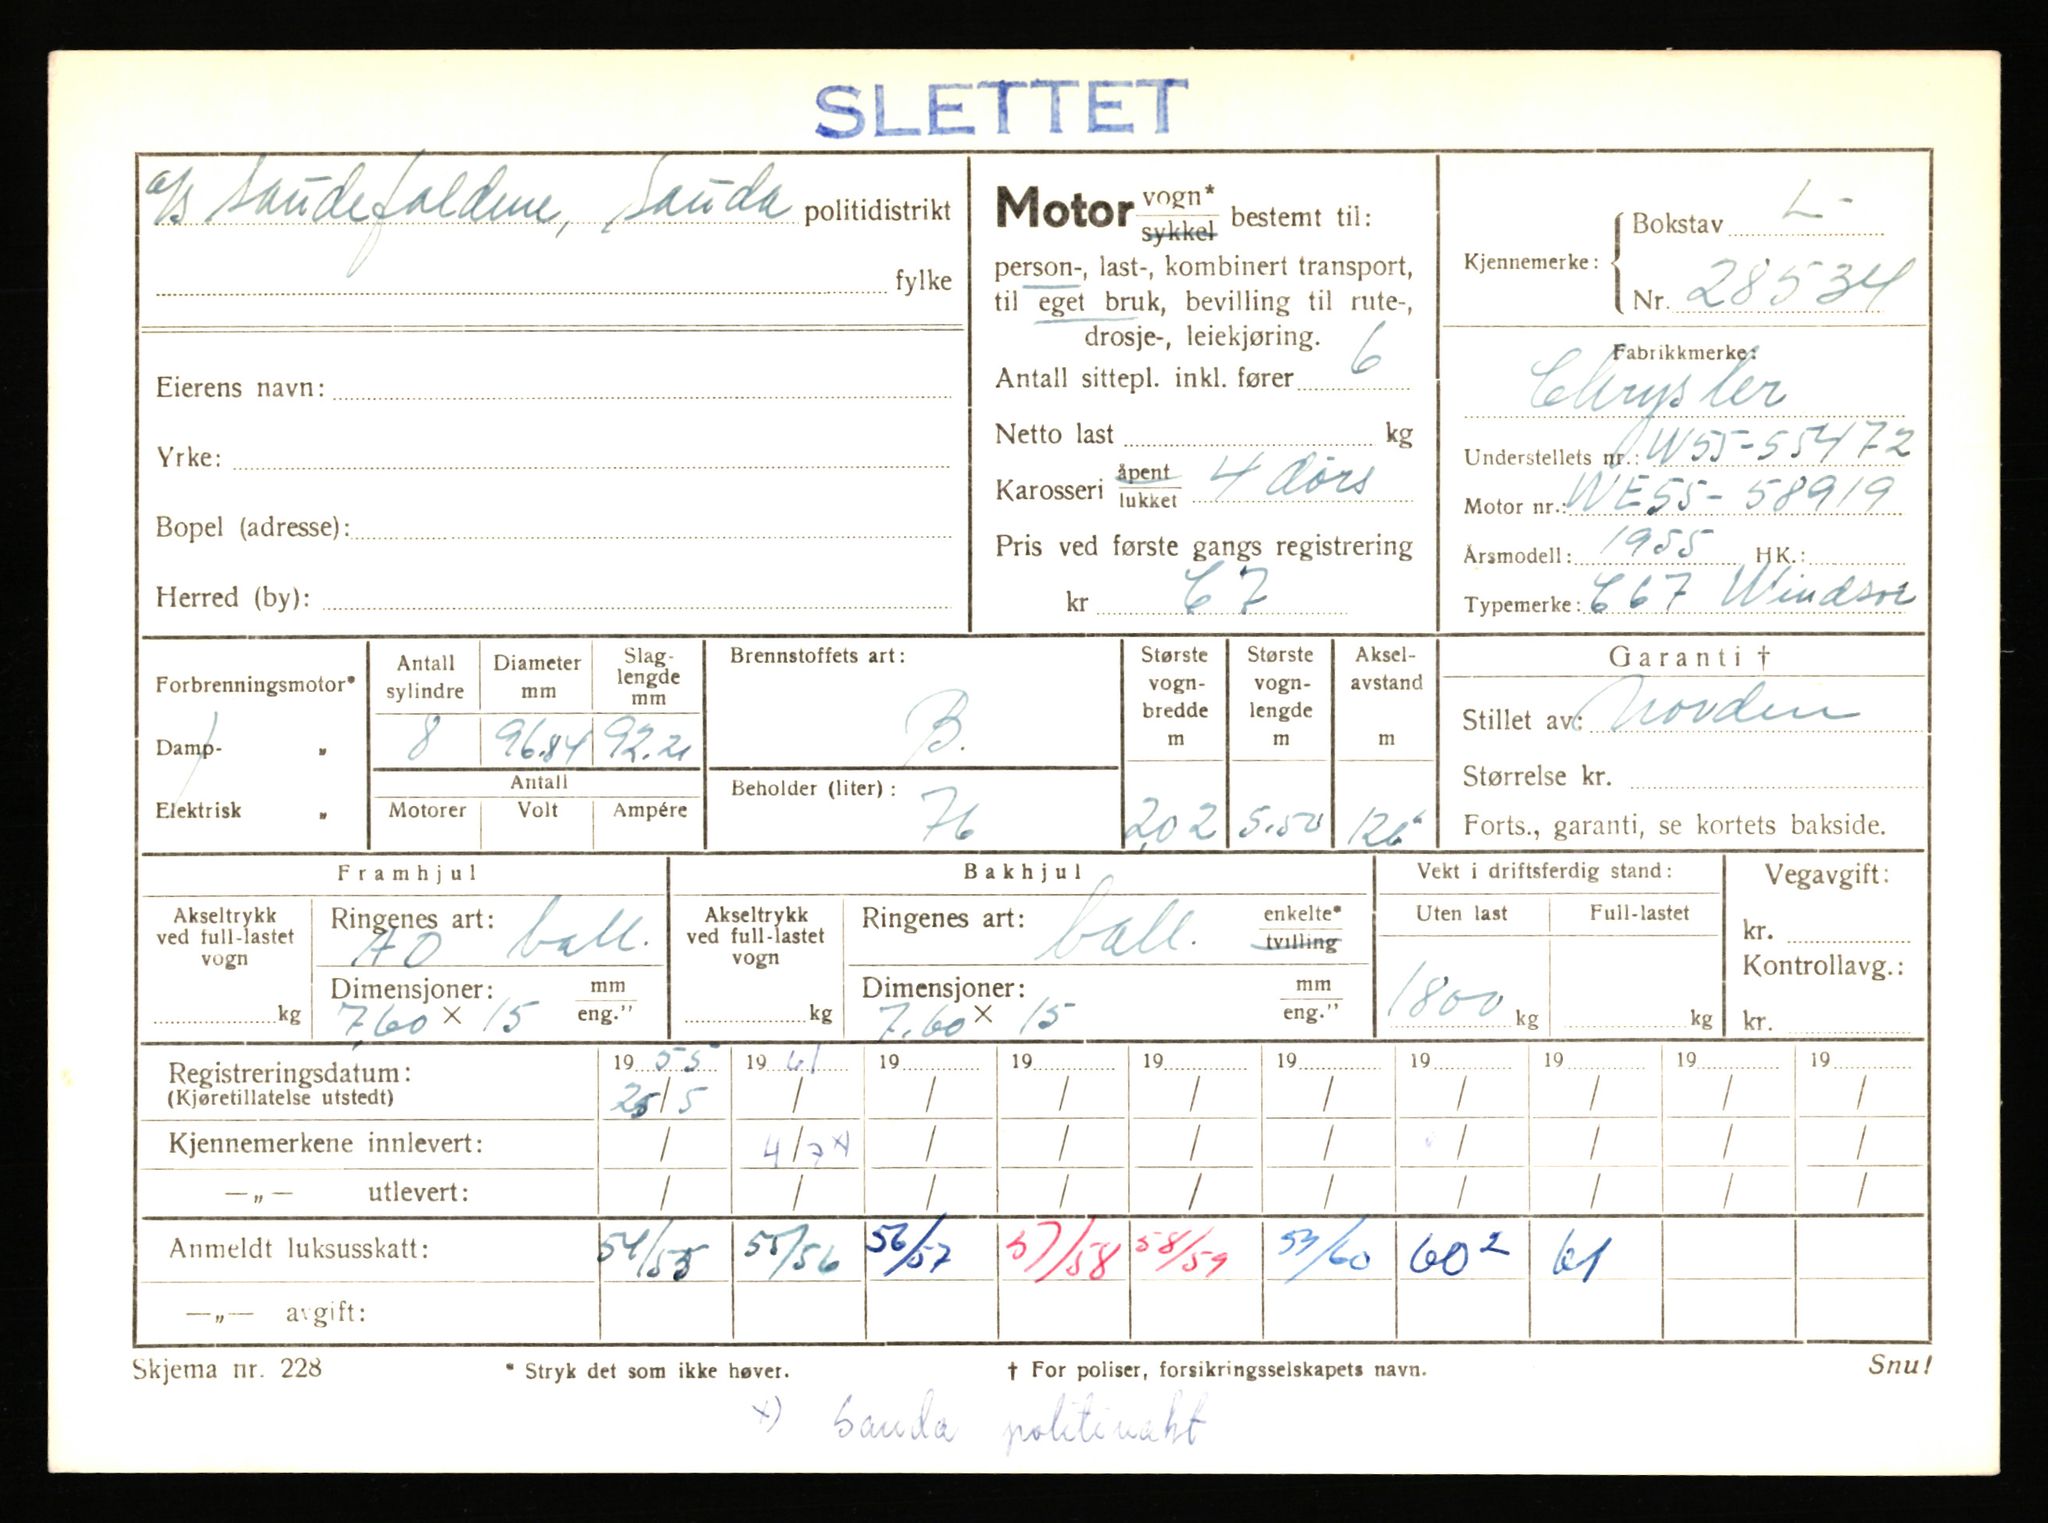 SLETTET
a/s Saudefaldene, Sauda politidistrikt
fylke
Eierens navn:
Yrke:
Bopel (adresse):
Herred (by):
Motor vogn* sykkel bestemt til:
person-, last-, kombinert transport,
til eget bruk, bevilling til rute-,
drosje-, leiekjøring.
Antall sittepl. inkl. fører 6
Netto last kg
Karosseri åpent lukket 4 dørs
Pris ved første gangs registrering
kr C 7
Kjennemerke: Bokstav L-
Nr. 28534
Fabrikkmerke:
Chrysler
Understellets nr.: W55-55472
Motor nr.: WE55-58919
Årsmodell: 1955 HK.:
Typemerke: C 67 Windsor
Forbrenningsmotor*
Damp- „
Elektrisk „
Antall sylindre
Diameter mm
Slag-lengde mm
8 96.84 92.21
Antall
Motorer Volt Ampére
Brennstoffets art:
B.
Beholder (liter):
76
Største vogn-bredde m
Største vogn-lengde m
Aksel-avstand m
2,02 5.50 126"
Garanti †
Stillet av: Norden
Størrelse kr.
Forts., garanti, se kortets bakside.
Framhjul
Akseltrykk ved full-lastet vogn
kg
Ringenes art:
AO ball.
Dimensjoner: mm eng."
7,60 × 15
Bakhjul
Akseltrykk ved full-lastet vogn
kg
Ringenes art: ball. enkelte* tvilling
Dimensjoner: mm eng."
7.60 × 15
Vekt i driftsferdig stand:
Uten last Full-lastet
1800 kg kg
Vegavgift:
kr.
Kontrollavg.:
kr.
Registreringsdatum: 19 55 19 61 19 19 19 19 19 19 19 19
(Kjøretillatelse utstedt) 25/5 / / / / / / / / /
Kjennemerkene innlevert: / 4/7 x) / / / / / / / /
—„— utlevert: / / / / / / / / / /
Anmeldt luksusskatt: 54/55 55/56 56/57 57/58 58/59 59/60 60² 61
—„— avgift:
Skjema nr. 228 * Stryk det som ikke høver. † For poliser, forsikringsselskapets navn. Snu!
x) Sauda politivakt